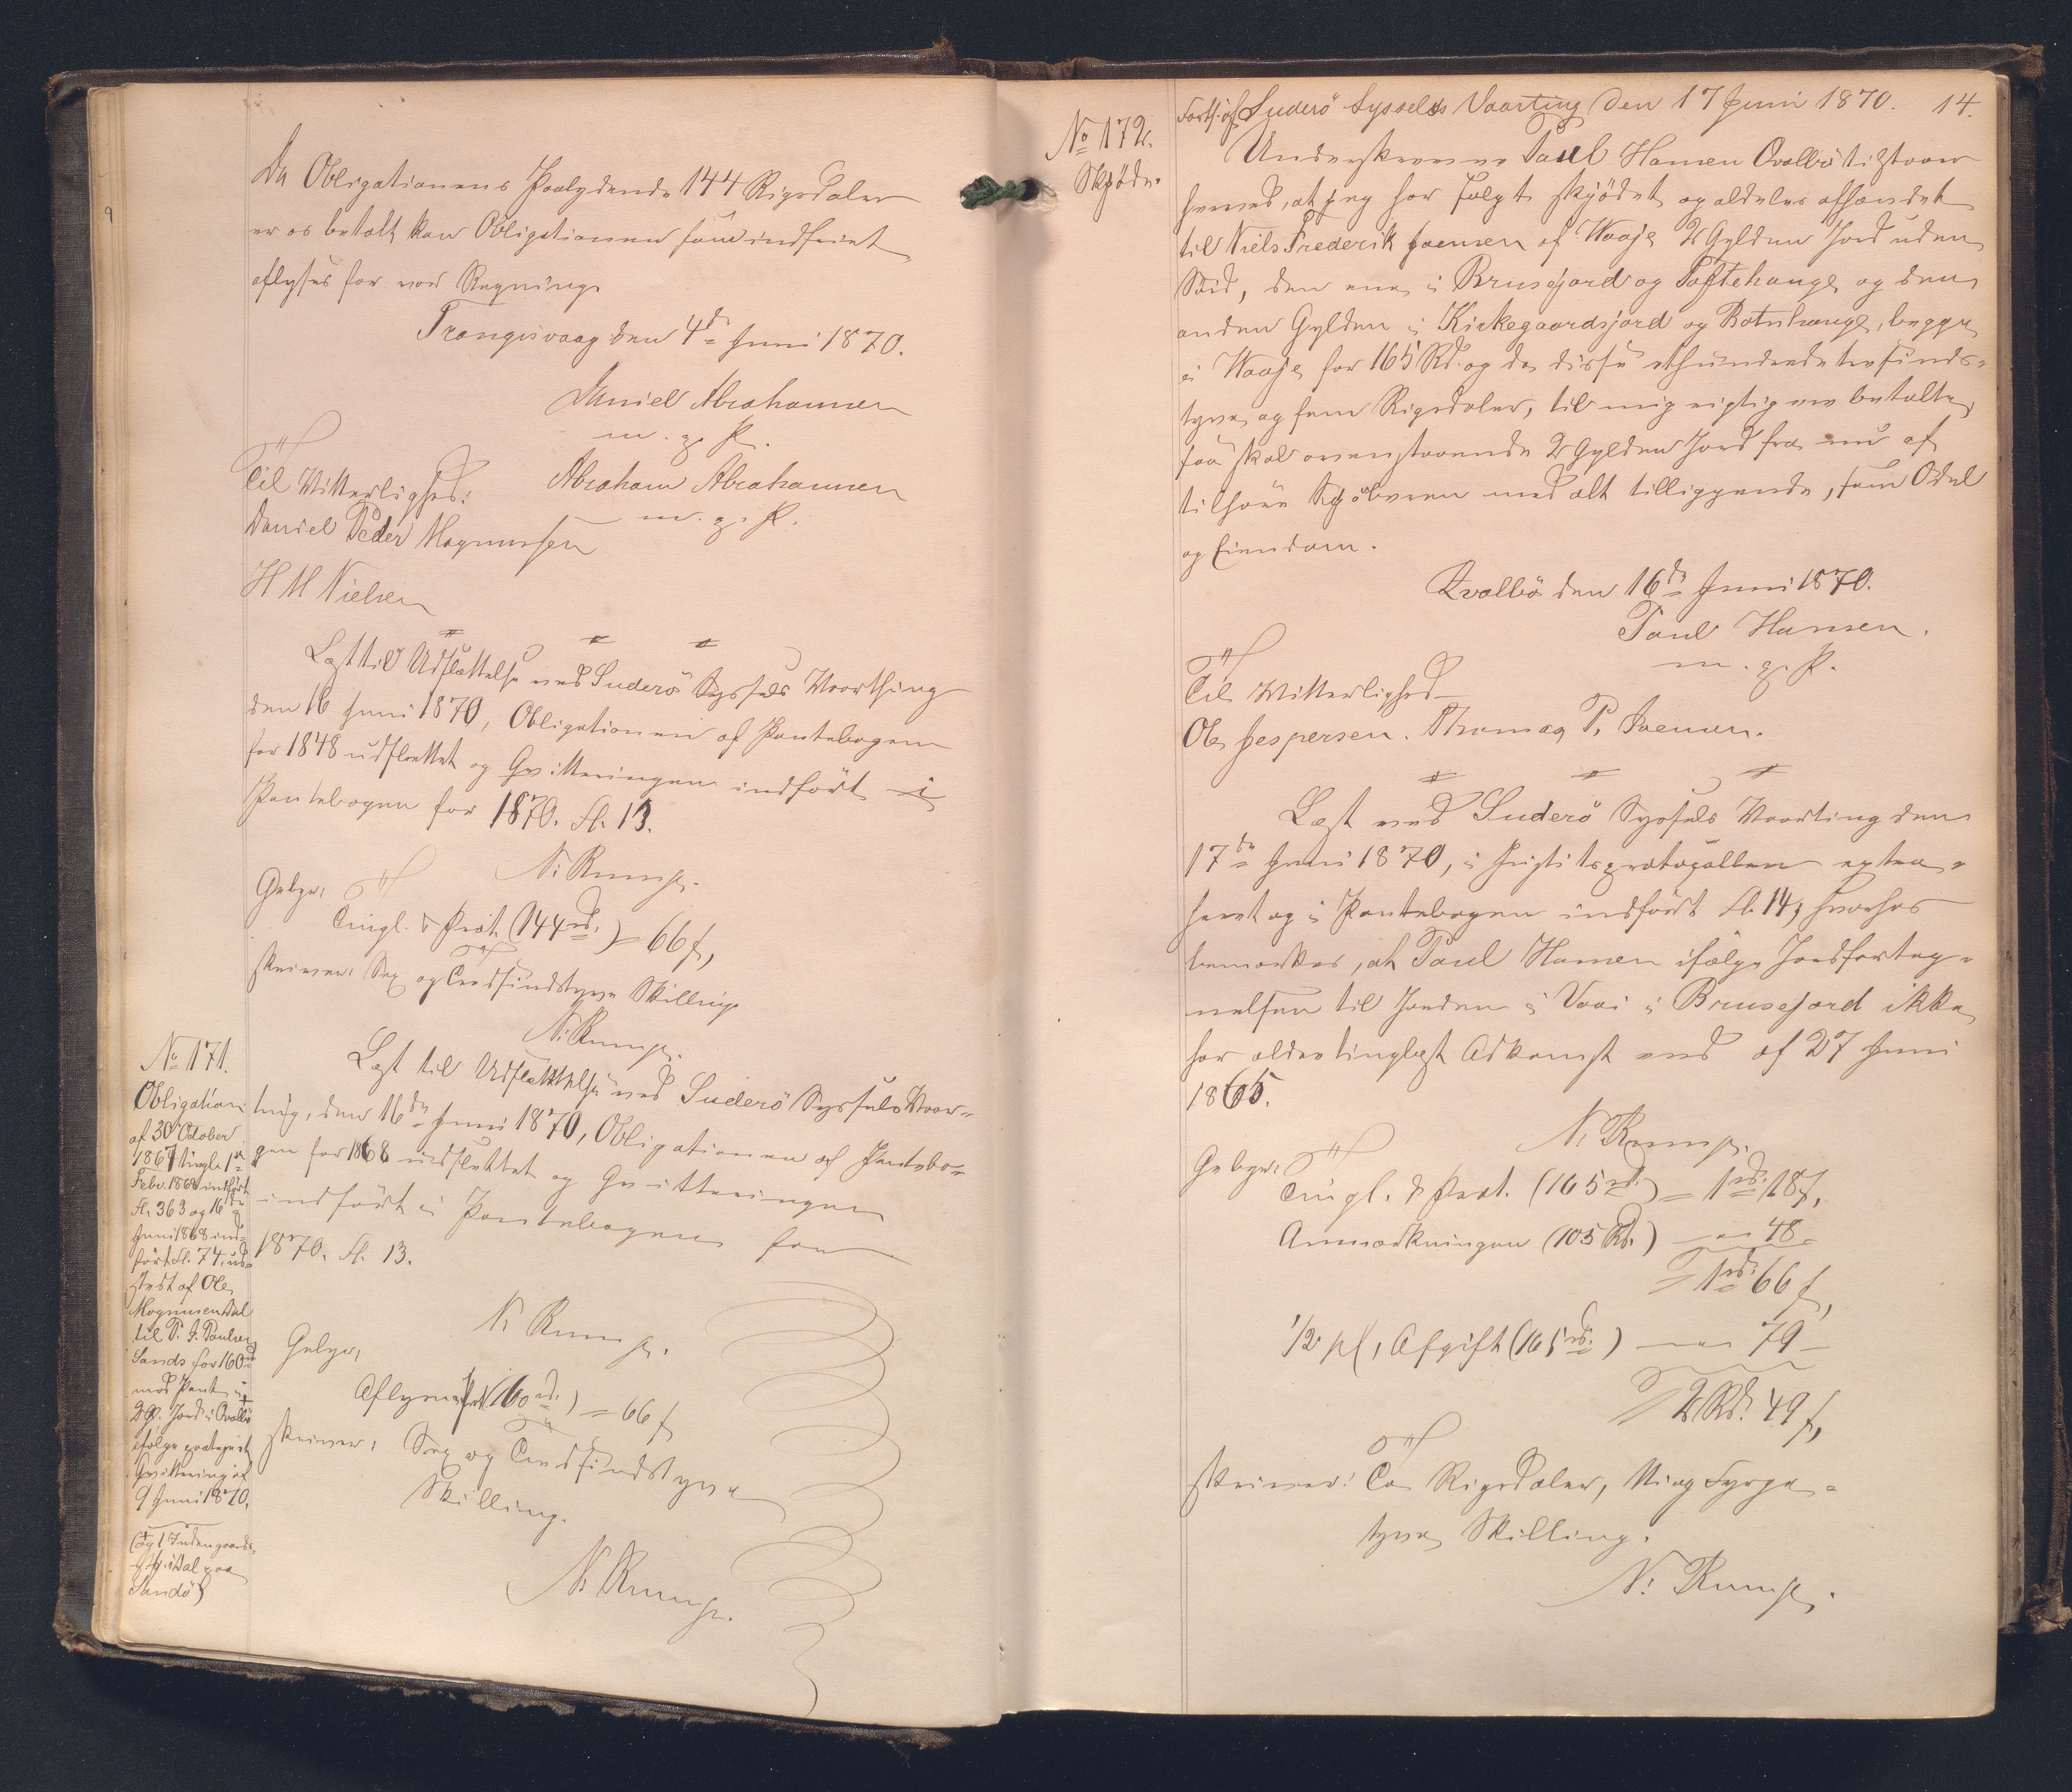 Da Obligationens Paalydende 144 Rigsdaler
er os betalt kan Obligationen som indfriet
aflyses for vor Regning.
Trangisvaag den 4de Juni 1870.
Daniel Abrahamsen
m. g. P.
Til Vitterlighed: Abraham Abrahamsen
m. g. P.
Daniel Peder Mogensen
H M Nielsen
Læst til Udslettelse ved Suderö Syssels Vaarthing
den 16 Juni 1870, Obligationen af Pantebogen
for 1848 udslettet og Qvitteringen indført i
Pantebogen for 1870. Fl. 13.
N. Rump.
Gebyr:
Tingl. & Prot. (144 rd.) = 66 ſ,
skriver: Sex og Tredsindstyve Skilling
N. Rump.
No 171.
Obligation
af 30 October
1867 tingl. 1ste
Febr. 1868 indført
Fl. 363 og 16de
Juni 1868 ind-
ført Fl. 74, ud-
stedt af Ole
Mogensen Dal
til P. J. Poulsen
Sands for 160 rd
mod Pant i +
2 G. Jord i Qvalbö
ifølge protegeret
Qvittering af
9 Juni 1870.
(+ og 1 Indengaards-
i Dal paa
Sandö)
Læst til Udslettelse ved Suderö Syssels Vaar-
ting, den 16de Juni 1870, Obligationen af Pantebo-
gen for 1868 udslettet og Qvitteringen
indført i Pantebogen for
1870. Fl. 13.
N. Rump.
Gebyr,
Aflysn. Prot. (160 rd.) = 66 ſ
skriver: Sex og Tredsindstyve
Skilling.
N. Rump.
Forts. af Suderö Syssels Vaarting den 17 Juni 1870. 14.
No 172.
Skjöde.
Underskrevne Poul Hansen Qvalbö tilstaaer
herved, at jeg har solgt skjödet og aldeles afhændet
til Niels Frederik Joensen af Waaje 2 Gylden Jord uden
Söid, den ene i Brusejord og Toftehauge og den
anden Gylden i Kirkegaardsjord og Botnhauge, begge
i Waaje for 165 Rd. og da disse ethundrede tresinds-
tyve og fem Rigsdaler, til mig rigtig ere betalte,
saa skal ovenstaaende 2 Gylden Jord fra nu af
tilhöre Kjöberen med alt tilliggende, som Odel
og Eiendom.
Qvalbö den 16de Juni 1870.
Poul Hansen.
m. g. P.
Til Vitterlighed
Ole Jespersen. Thomas P. Joensen.
Læst ved Suderö Syssels Vaarting den
17de Juni 1870, i Justitsprotocollen extra-
heret og i Pantebogen indført Fl. 14, hvorhos
bemærkes, at Poul Hansen ifølge Jordforteg-
nelsen til Jorden i Vaai i Brusejord ikke
har ældre tinglæst Adkomst end af 27 Juni
1865.
N. Rump.
Gebyr:
Tingl. & Prot. (165 rd.) = 1 rd. 18 ſ,
Anmærkningen (105 Rd.) — 48
1 rd. 66 ſ,
1/2 pC, Afgift (165 rd.) — 79
2 Rd. 49 ſ,
skriver: To Rigsdaler, Ni og Fyrge-
tyve Skilling.
N. Rump.